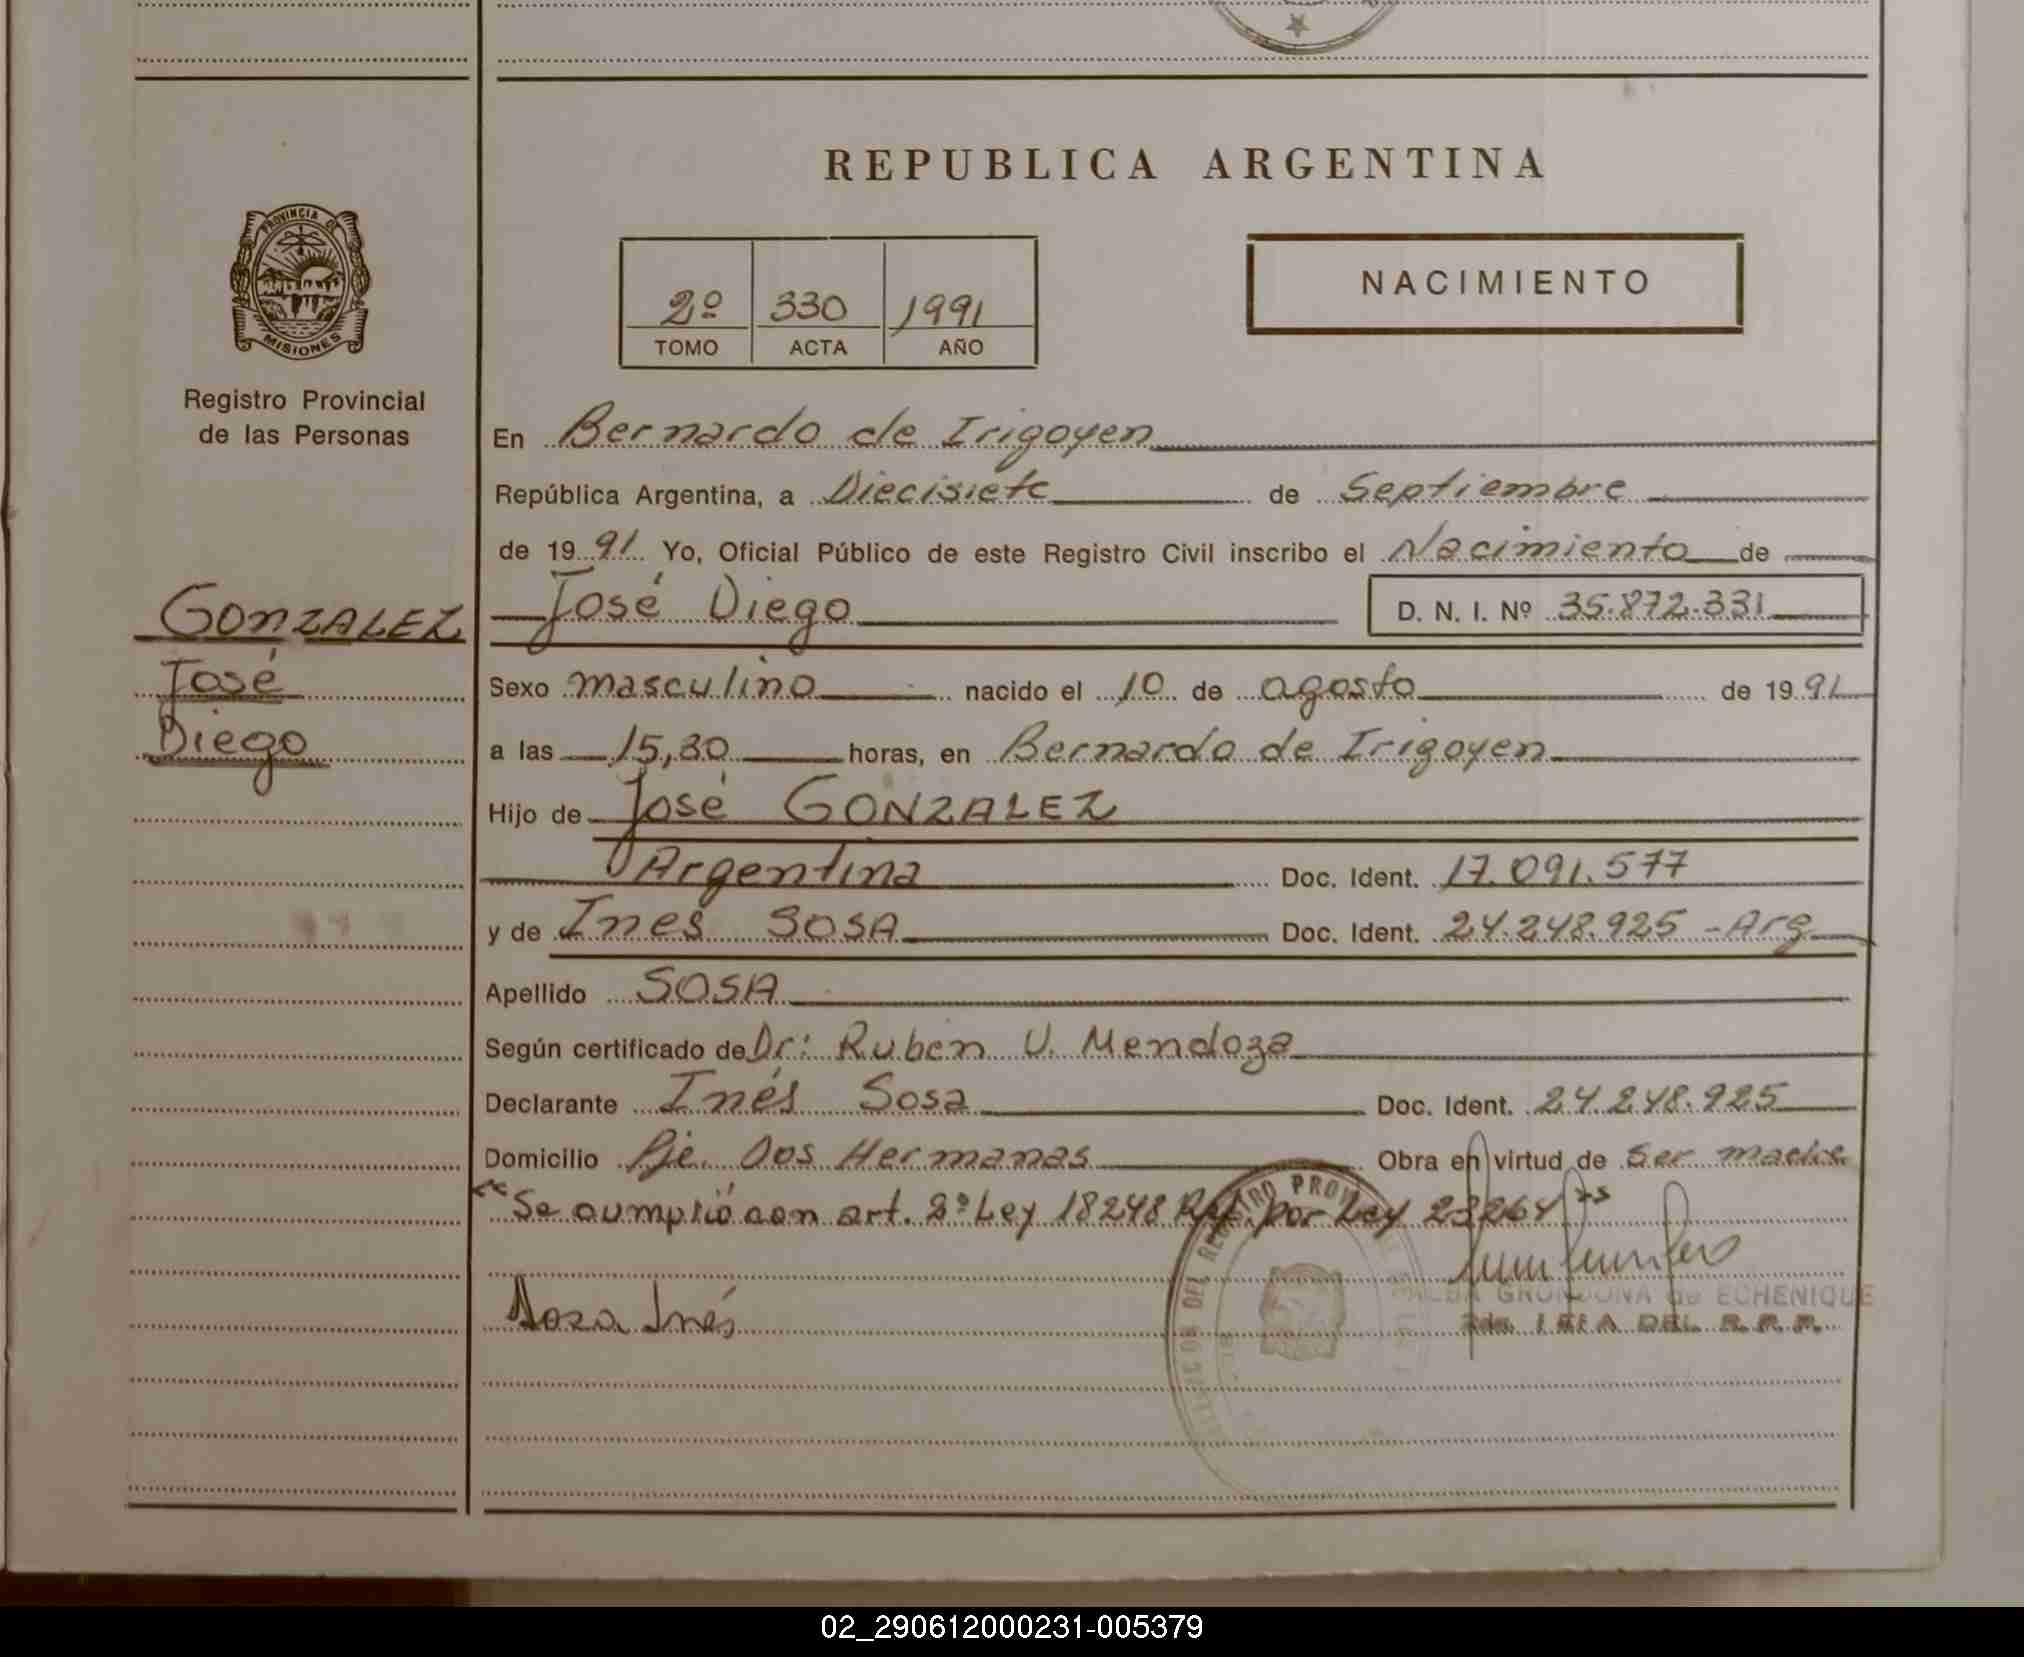 REPUBLICA ARGENTINA
PROVINCIA DE
MISIONES
Registro Provincial
de las Personas
2º 330 1991
TOMO ACTA AÑO
NACIMIENTO
En Bernardo de Irigoyen
República Argentina, a Diecisiete de Septiembre
de 1991 Yo, Oficial Público de este Registro Civil inscribo el Nacimiento de
GONZALEZ
José
Diego
José Diego D. N. I. Nº 35.872.331
Sexo masculino nacido el 10 de agosto de 1991
a las 15,30 horas, en Bernardo de Irigoyen
Hijo de José GONZALEZ
Argentina Doc. Ident. 17.091.577
y de Ines SOSA Doc. Ident. 24.248.925 - Arg
Apellido SOSA
Según certificado de Dr: Ruben U. Mendoza
Declarante Inés Sosa Doc. Ident. 24.248.925
Domicilio Pje. Dos Hermanas Obra en virtud de ser madre
"Se cumplió con art. 2º Ley 18248 Ref. por Ley 23264"
Sosa Inés
GRONDONA de ECHENIQUE
JEFA DEL R. P. P.
02_290612000231-005379